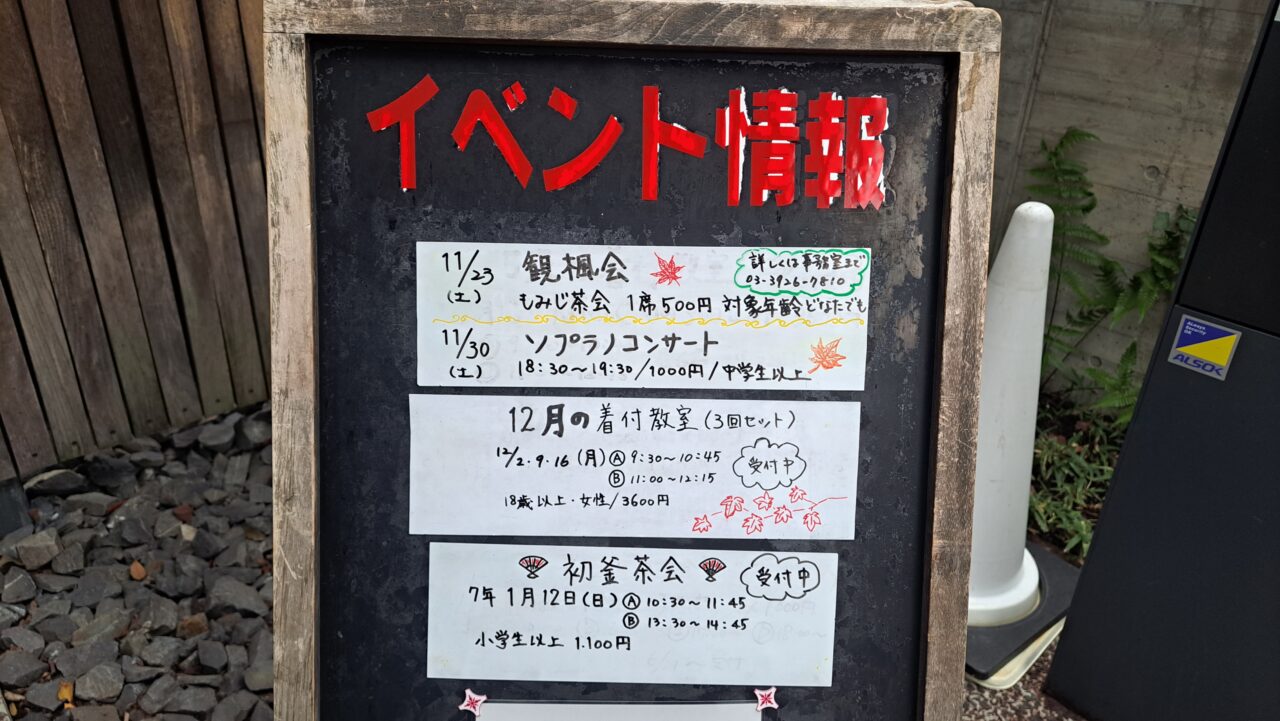 イベント情報
11/23
(土)
観楓会
詳しくは事務室まで
03-3926-7810
もみじ茶会 1席500円 対象年齢どなたでも
11/30
(土)
ソプラノコンサート
18:30～19:30/1000円/中学生以上
12月の着付教室(3回セット)
12/2.9.16(月)Ⓐ9:30～10:45
Ⓑ11:00～12:15
受付中
18歳以上・女性/3600円
初釜茶会
受付中
7年1月12日(日)Ⓐ10:30～11:45
Ⓑ13:30～14:45
小学生以上 1.100円
ALways
Security
OK
ALSOK